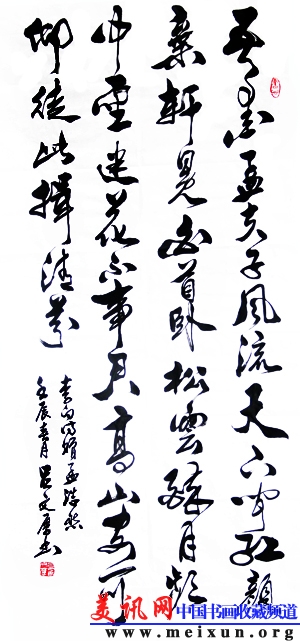 吾愛孟夫子風流天下聞紅顏
棄軒冕白首卧松雲醉月頻
中聖迷花不事君高山安可
仰徒此揖清芬
李白詩贈孟浩然
壬辰春月吕文書
美讯网 中国书画收藏频道
www.meixun.org